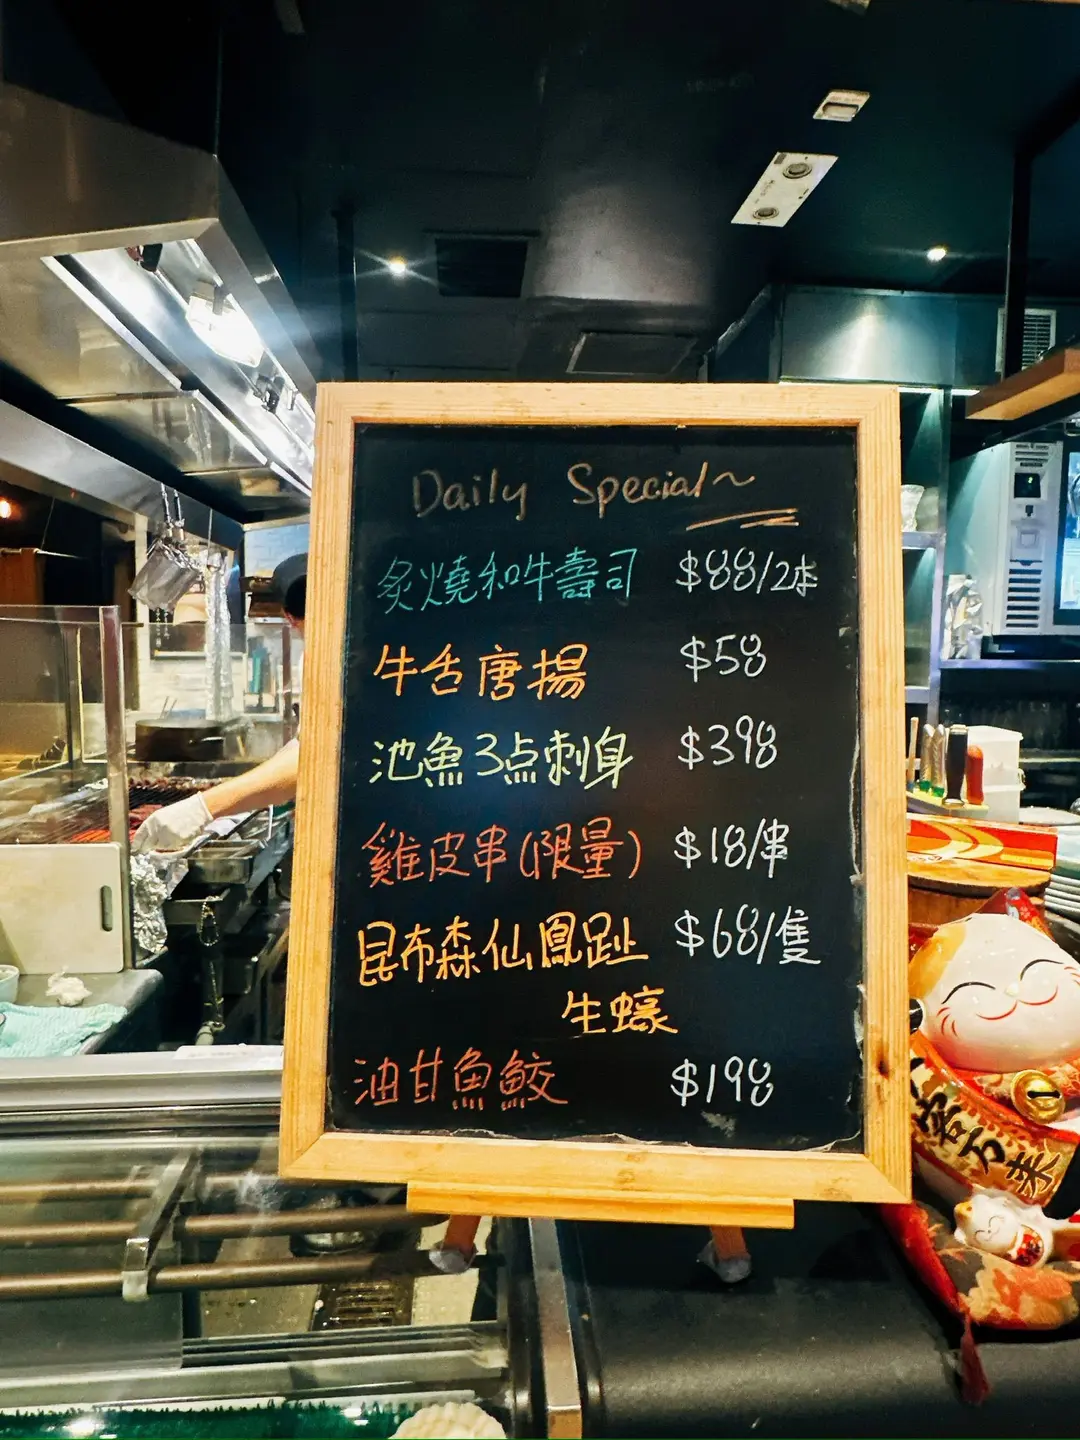 Daily Special~
炙燒和牛壽司 $88/2本
牛舌唐揚 $58
池魚3点刺身 $398
雞皮串(限量) $18/串
昆布森仙鳳趾 $68/隻
生蠔
油甘魚鮫 $198
客万来